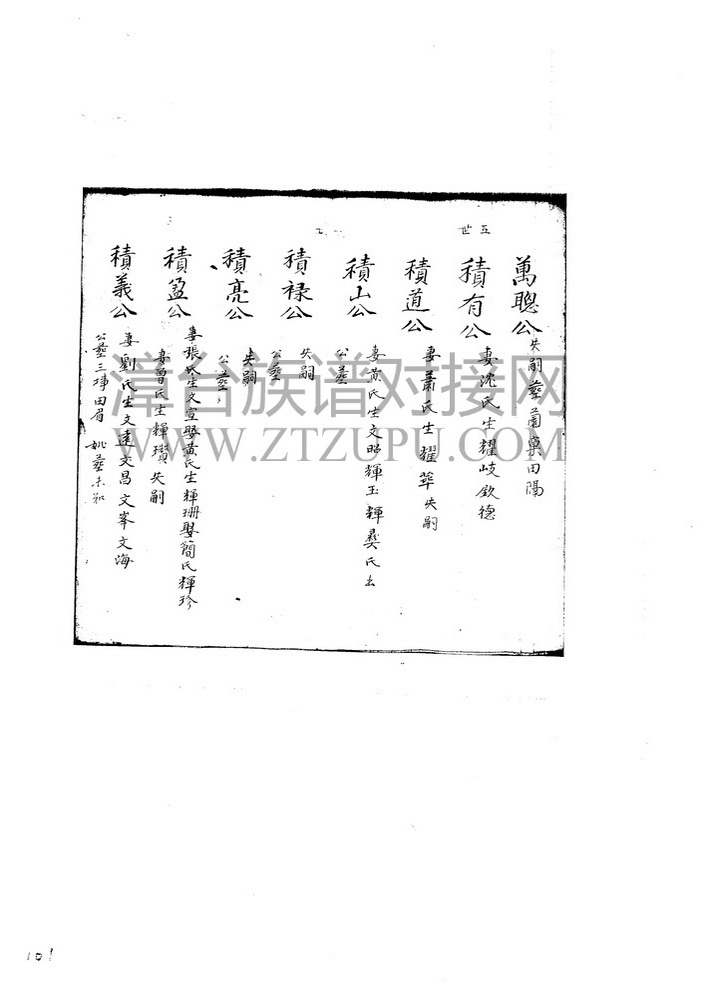 五世
萬聰公
失嗣葬園窠田陽
積有公
妻沈氏生耀岐欽德
積道公
妻蕭氏生耀華失嗣
積山公
妻黄氏生文昭輝玉輝彝氏出
公葬
積禄公
失嗣
公葬
積亮公
失嗣
公葬
積盈公
妻張氏生文宣娶黄氏生輝珊娶簡氏輝珍
妻曾氏生輝瓚失嗣
積義公
妻劉氏生文遠文昌文峯文海
公葬三埠田眉 妣葬未知
漳台族谱对接网
WWW.ZTZUPU.COM
101